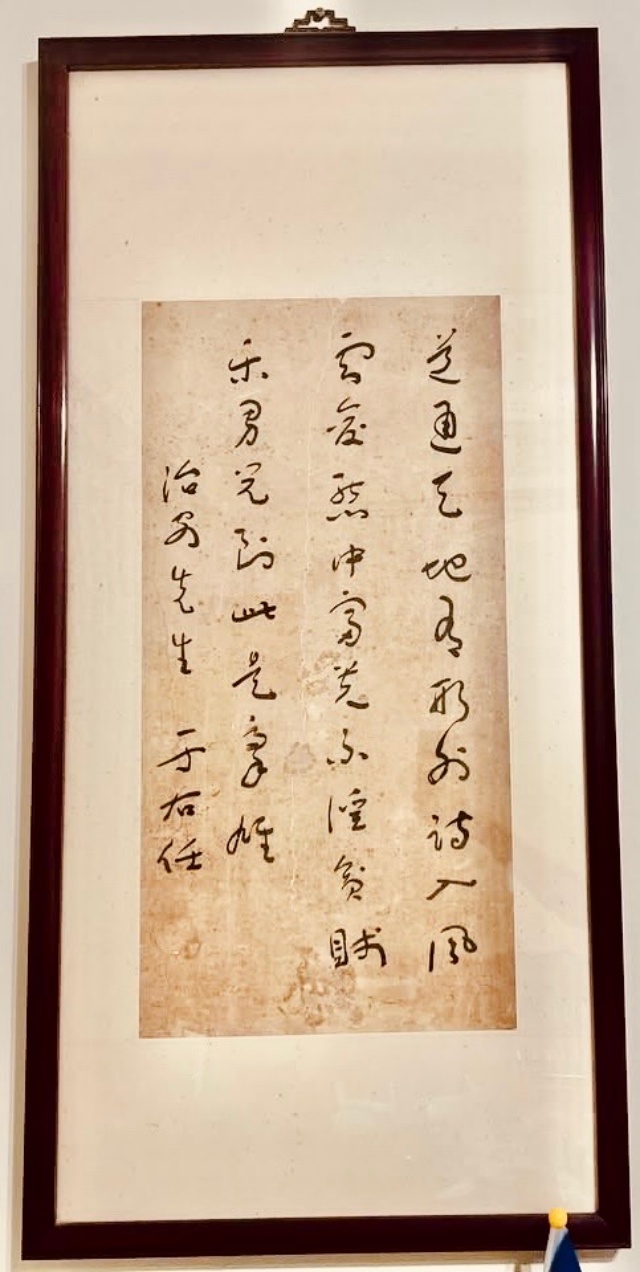 道通天地有形外詩入風
雲變態中富貴不淫貧賤
樂男兒到此是豪雄
治先生 于右任